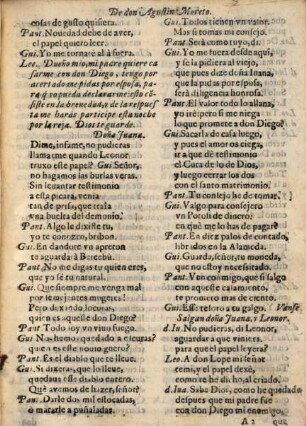 De don Agustin Moreto.
cosas de gusto quisiera.
Pant. Novedad debe de aver,
el papel quiero leer.
Gui. Yo me tornarè al à fuera.
Lee. Dueño mio, mi padre quiere ca
sarme con don Diego, tengo por
acertado me pidas por esposa, pa
ra q
siste en la brevedad, e de la respuesta
me haràs participe esta noche
por la reja. Dios te guarde.
Doña Juana.
Dime, infame, no pudieras
llamarme quando Leonor
truxo esse papel? Gui. Señor,
no hagamos las burlas veras.
Sin levantar testimonio
ella passa, venia
tan de prisa, que traía
una buelta del demonio.
Pant. Algo le dixiste tu,
yo te conozco, bribon.
Gui. En dandome un apreton
te aguardarà Bercebù.
Pant. No me digas tu quien eres,
que yo sè tu natural.
Gui. Que siempre me venga mal
por terceras mugeres!
Pero dexando locuras
quien es aquesse don Diego?
Pant. Todo soy un vivo fuego.
Gui Nas hemos quedado à escuras?
quien es en resolucion?
Pant. Es el diablo que te lleve.
Gui. Si dixeras, que lo lleve,
quedavas esse diablo cierto.
Què avemos de hazer, señor?
Pant. Darle dos mil estocadas,
ò matarle à puñaladas.
Gui. Todos tienen un valor.
Mas si tomas mi consejo.
Pant. Serà como tuyo, di.
Gui. Yo me fuera desde aqui,
y se la pidiera al viejo,
que pues dize doña Juana,
que la pidas por esposa,
serà diligencia honrosa.
Pant. El valor todo lo allana,
y yo irè; pero si me niega
lo que promete à don Diego?
Gui. Sacarla de casa luego,
y pues el amor os ciega,
à ir à esse testimonio
el Cura de lo de Dios,
y luego cerrar los dos
con el santo matrimonio.
Pant. Tu consejo he de tomar.
Gui. Valgo para consejero
un Potosì de dinero.
en què me lo has de pagar?
Pant. En diez palos de contado,
libridos en la Alameda.
Gui. Guarda, señor, tu moneda,
que no estoy necessitado.
Pant. Ven conmigo, que si salgo
con aqueste casamiento,
te prometo mas de ciento.
Gui. Esse tesoro à tu galgo. Vanse
Salgan doña Juana, y Leonor.
d. Iu. No pudieras, di Leonor,
aguardar a que viniera,
para que el papel leyera?
Leo. A don Lope mi señor
temì, y el papel dexè,
como se he dicho, al criado.
d. Iua. Sabe Dios, como he quedado
despues que mi padre fue
con don Diego mi enemigo,
A 2
que